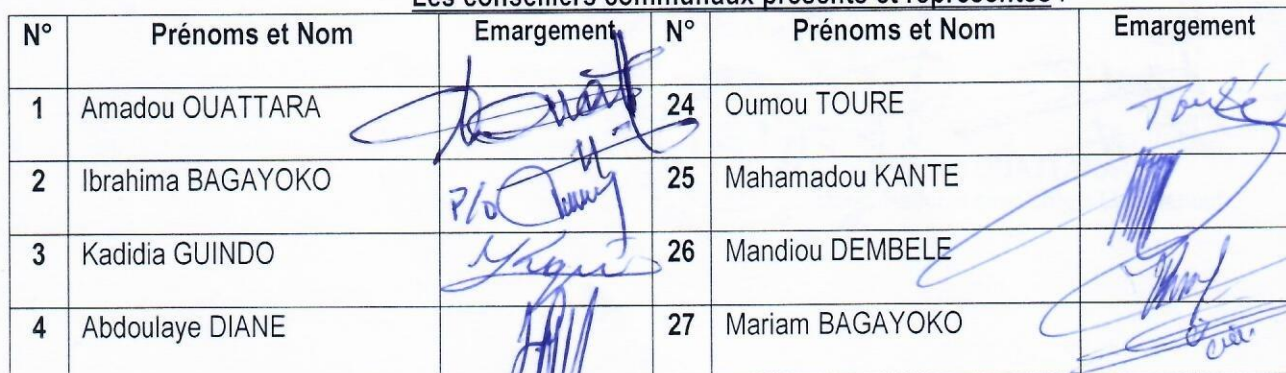 Les conseillers communaux présents et représentés :
N° Prénoms et Nom Emargement N° Prénoms et Nom Emargement
1 Amadou OUATTARA 24 Oumou TOURE Touré
2 Ibrahima BAGAYOKO P/o 25 Mahamadou KANTE
3 Kadidia GUINDO 26 Mandiou DEMBELE
4 Abdoulaye DIANE 27 Mariam BAGAYOKO